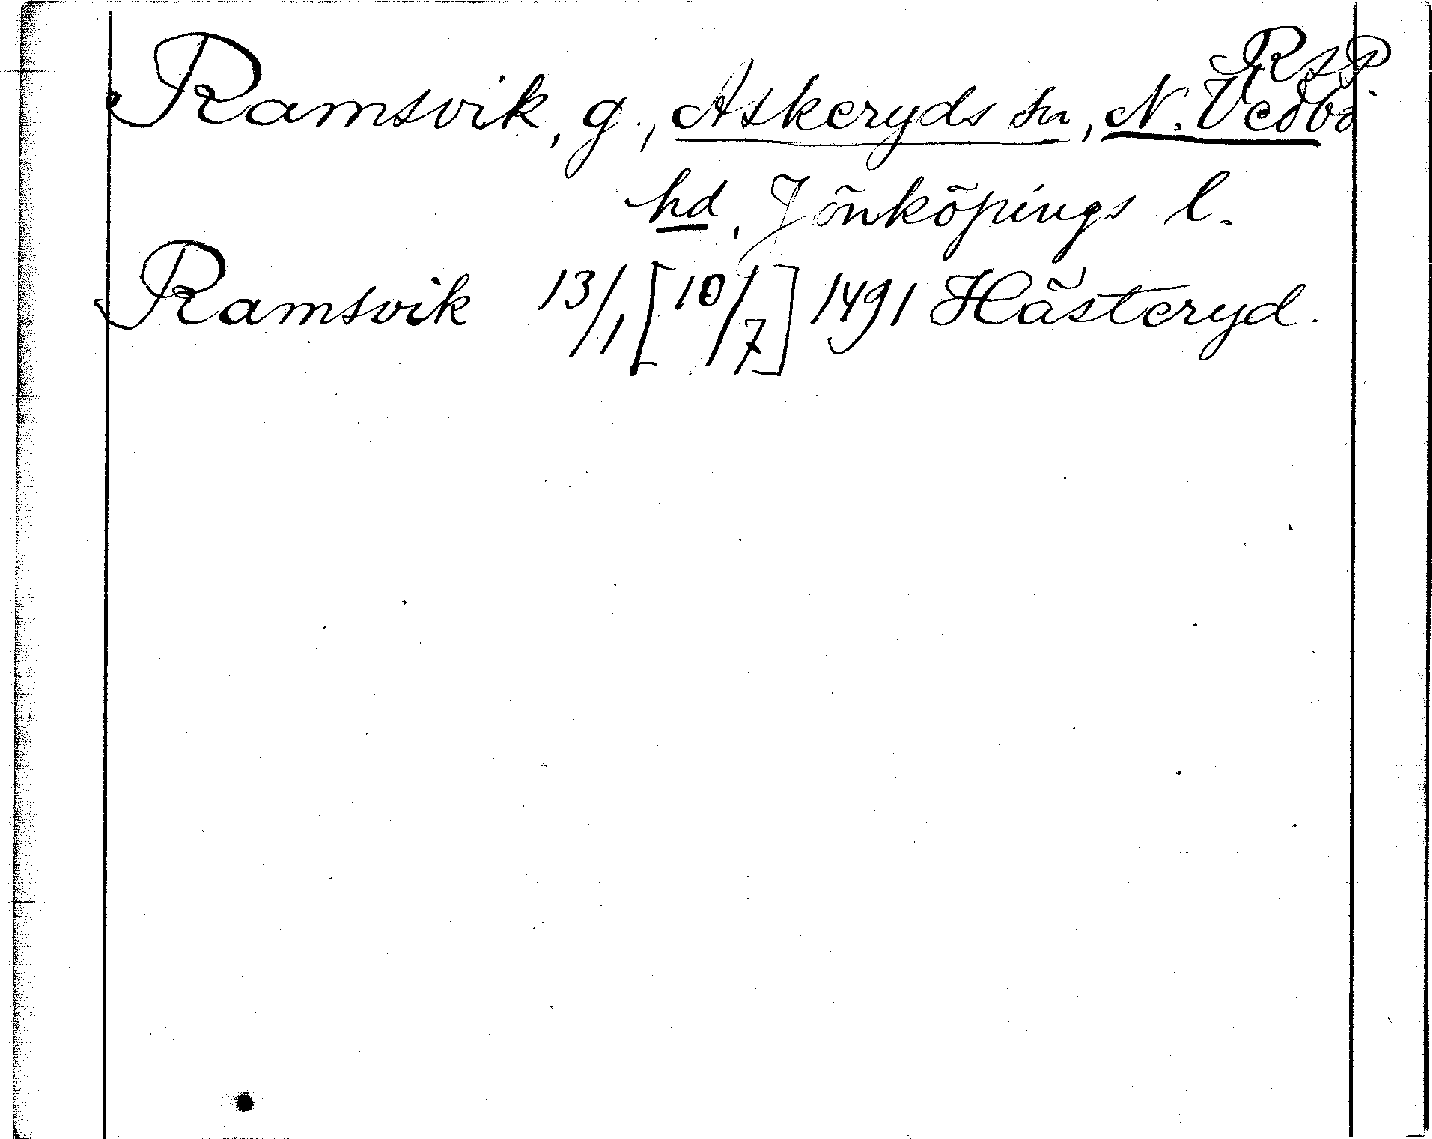 RAP
Ramsvik, g., Askeryds sn, N. Vedbo
hd, Jönköpings l.
Ramsvik 13/1 [10/7] 1491 Hästeryd.